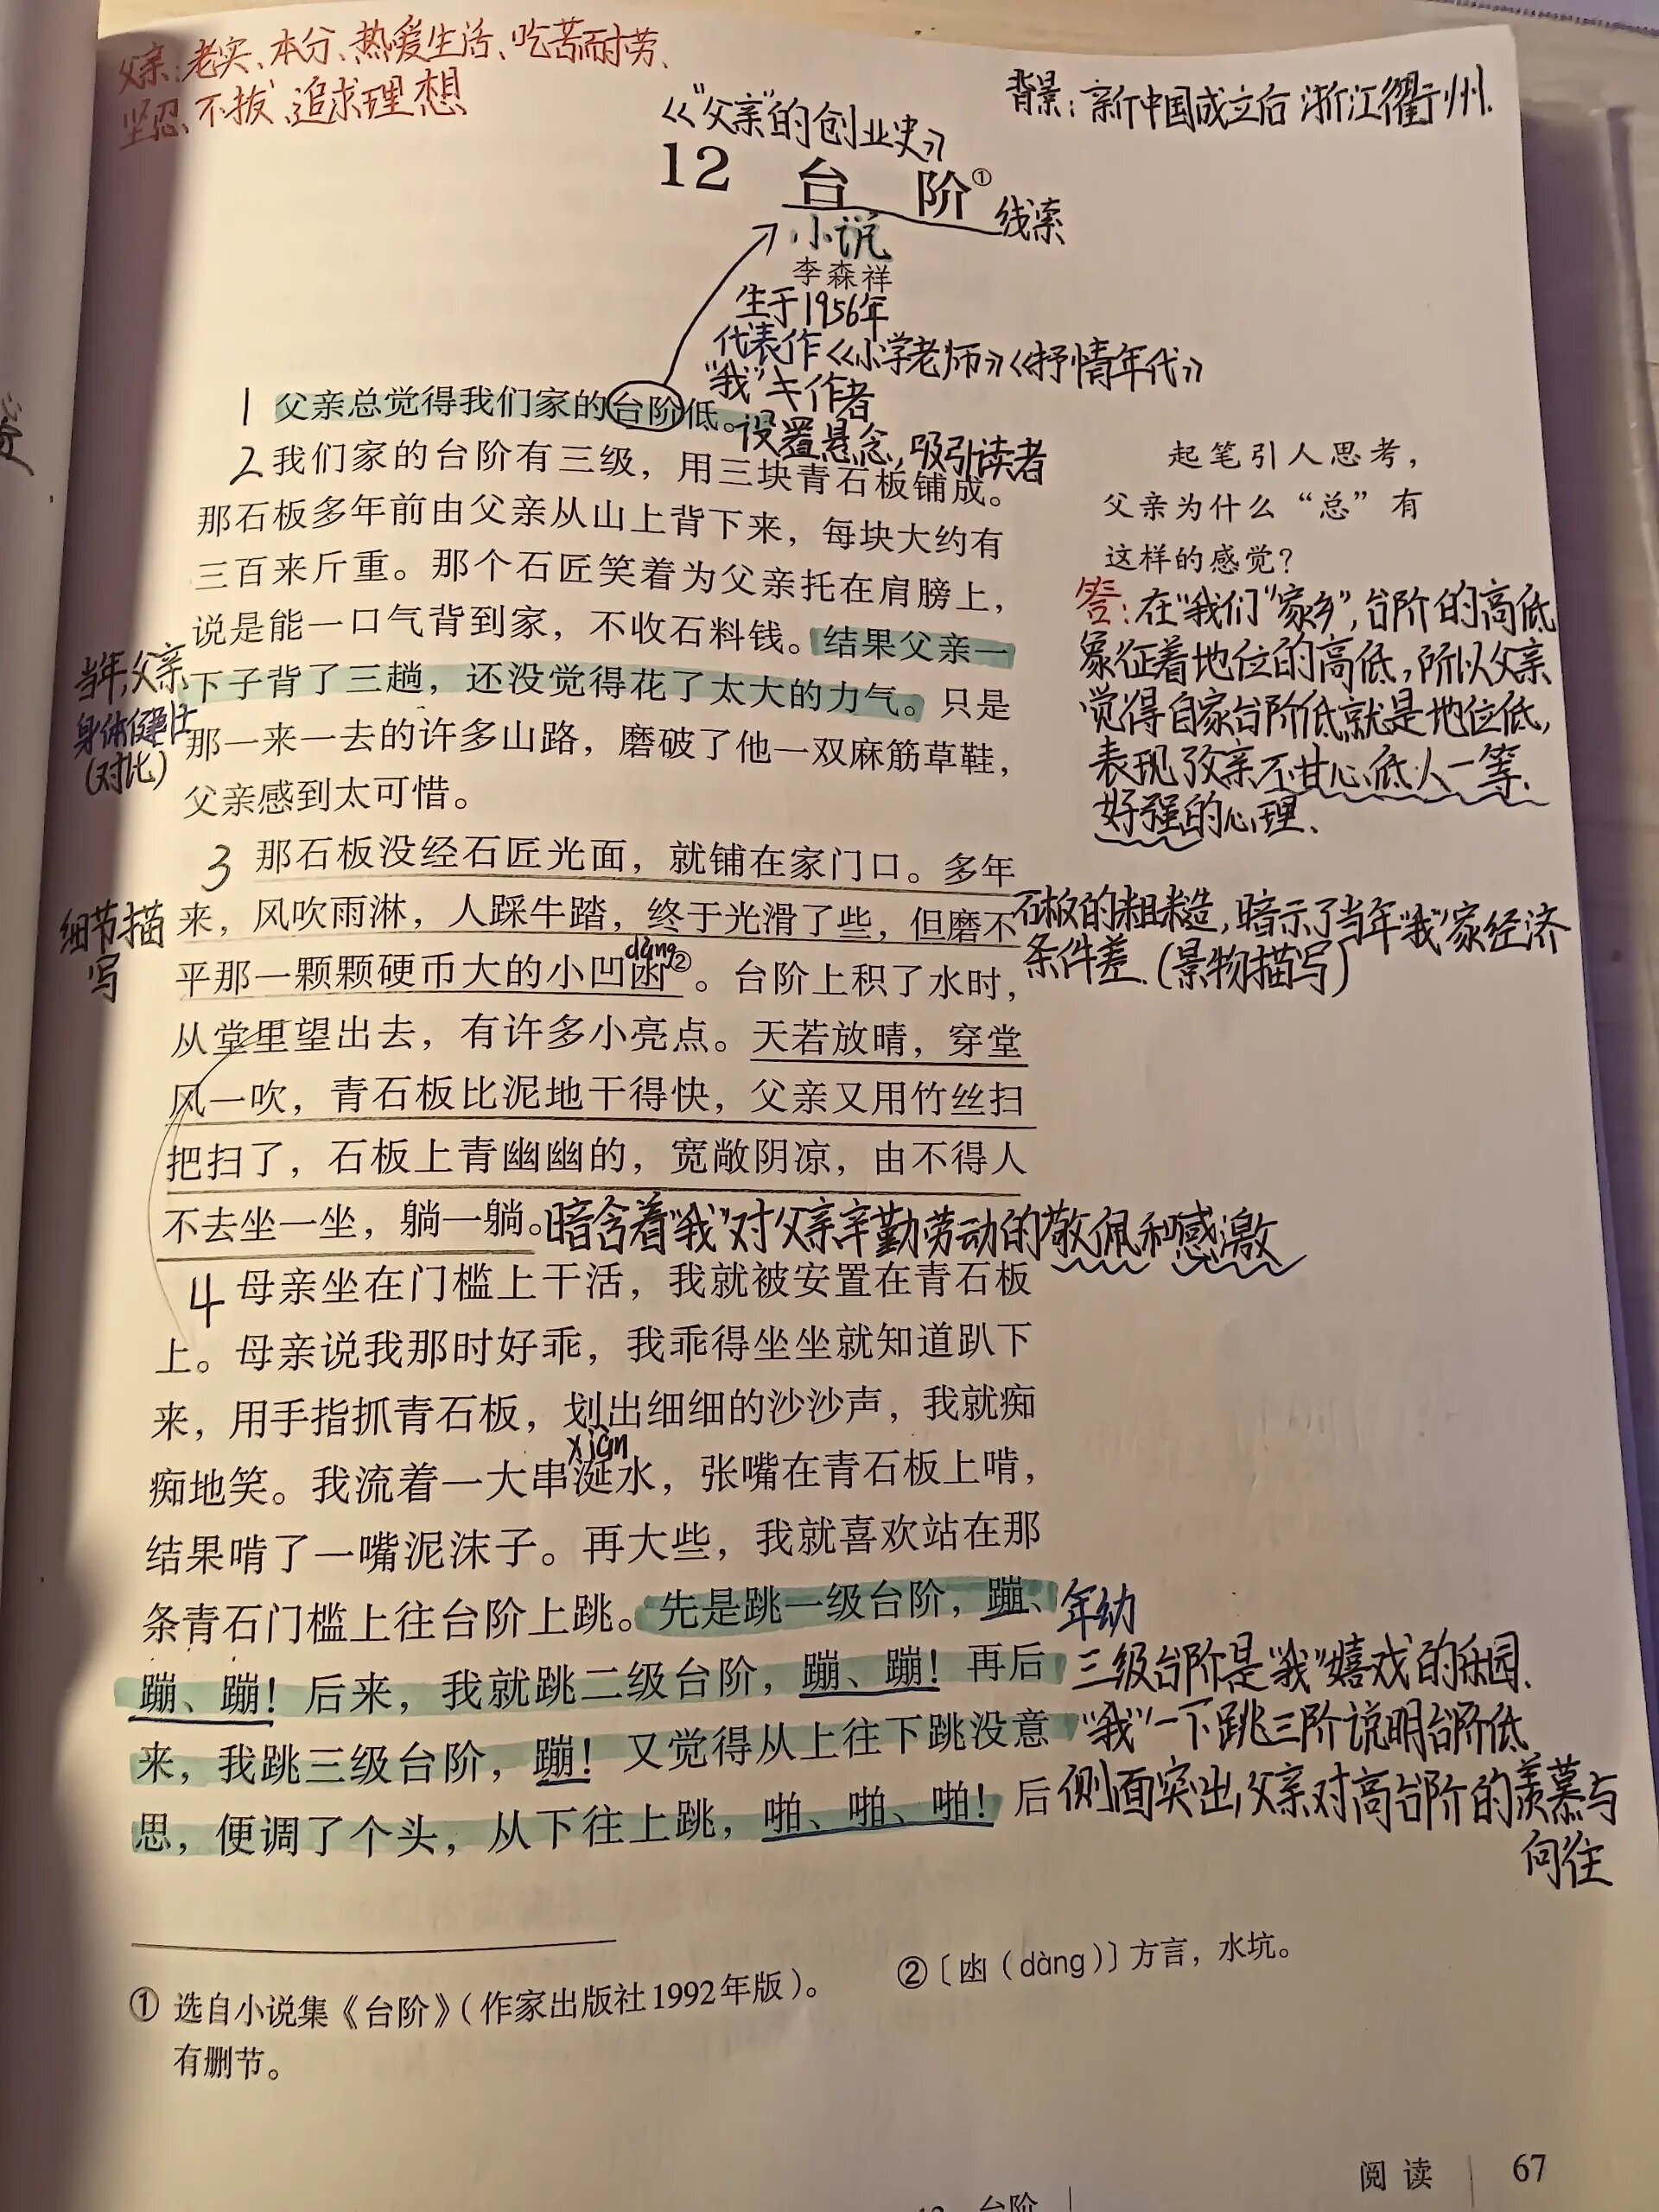 父亲:老实、本分、热爱生活、吃苦耐劳、
坚忍不拔、追求理想
背景:新中国成立后 浙江衢州.
《“父亲”的创业史》
12 台 阶①
线索
小说
李森祥
生于1956年
代表作《小学老师》《抒情年代》
“我”≠作者
1 父亲总觉得我们家的台阶低。
设置悬念,吸引读者
2 我们家的台阶有三级，用三块青石板铺成。
那石板多年前由父亲从山上背下来，每块大约有
三百来斤重。那个石匠笑着为父亲托在肩膀上，
说是能一口气背到家，不收石料钱。结果父亲一
下子背了三趟，还没觉得花了太大的力气。只是
那一来一去的许多山路，磨破了他一双麻筋草鞋，
父亲感到太可惜。
当年,父亲
身体健壮
(对比)
起笔引人思考，
父亲为什么“总”有
这样的感觉？
答:在“我们”家乡”,台阶的高低
象征着地位的高低,所以父亲
觉得自家台阶低就是地位低,
表现了父亲不甘心低人一等.
好强的心理、
3 那石板没经石匠光面，就铺在家门口。多年
来，风吹雨淋，人踩牛踏，终于光滑了些，但磨不
dàng
平那一颗颗硬币大的小凹凼②。台阶上积了水时，
从堂里望出去，有许多小亮点。天若放晴，穿堂
风一吹，青石板比泥地干得快，父亲又用竹丝扫
把扫了，石板上青幽幽的，宽敞阴凉，由不得人
不去坐一坐，躺一躺。
细节描
写
石板的粗糙,暗示了当年“我”家经济
条件差.(景物描写)
暗含着“我”对父亲辛勤劳动的敬佩和感激
4 母亲坐在门槛上干活，我就被安置在青石板
上。母亲说我那时好乖，我乖得坐坐就知道趴下
来，用手指抓青石板，划出细细的沙沙声，我就痴
xián
痴地笑。我流着一大串涎水，张嘴在青石板上啃，
结果啃了一嘴泥沫子。再大些，我就喜欢站在那
条青石门槛上往台阶上跳。先是跳一级台阶，蹦、
蹦、蹦！后来，我就跳二级台阶，蹦、蹦！再后
来，我跳三级台阶，蹦！又觉得从上往下跳没意
思，便调了个头，从下往上跳，啪、啪、啪！后
年幼
三级台阶是“我”嬉戏的乐园.
“我”一下跳三阶说明台阶低
侧面突出,父亲对高台阶的羡慕与
向往
① 选自小说集《台阶》（作家出版社1992年版）。
有删节。
②〔凼（dàng）〕方言，水坑。
阅读 67
12 台阶